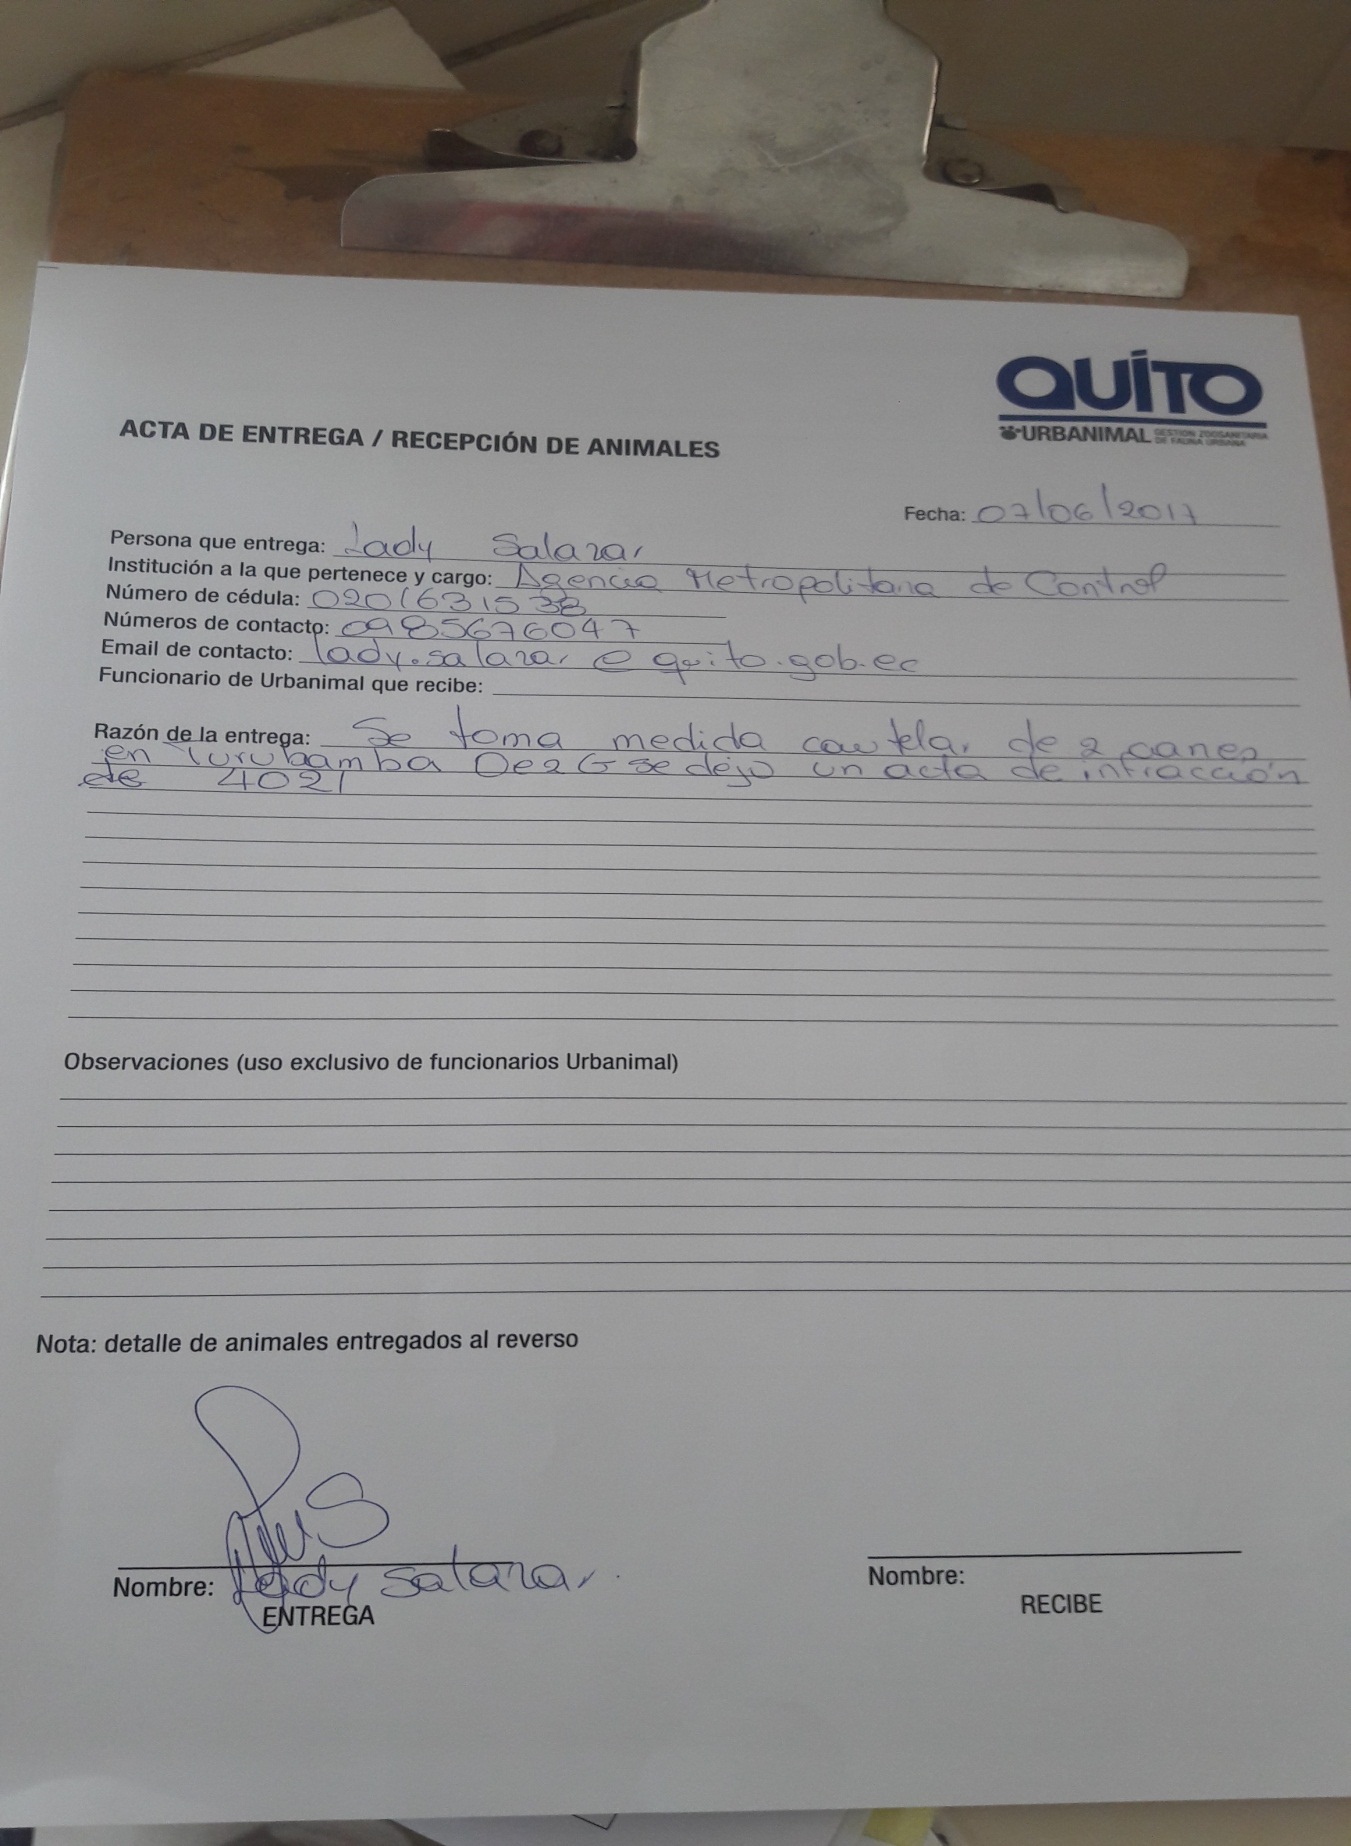 QUITO
URBANIMAL GESTIÓN ZOOSANITARIA
DE FAUNA URBANA
ACTA DE ENTREGA / RECEPCIÓN DE ANIMALES
Fecha: 07/06/2017
Persona que entrega: Lady Salazar
Institución a la que pertenece y cargo: Agencia Metropolitana de Control
Número de cédula: 0201631538
Números de contacto: 0985676047
Email de contacto: lady.salazar@quito.gob.ec
Funcionario de Urbanimal que recibe:
Razón de la entrega: Se toma medida cautelar de 2 canes
en Turubamba Oe2G se dejo un acta de infracción
de 4021
Observaciones (uso exclusivo de funcionarios Urbanimal)
Nota: detalle de animales entregados al reverso
Nombre: Lady Salazar.
ENTREGA
Nombre:
RECIBE